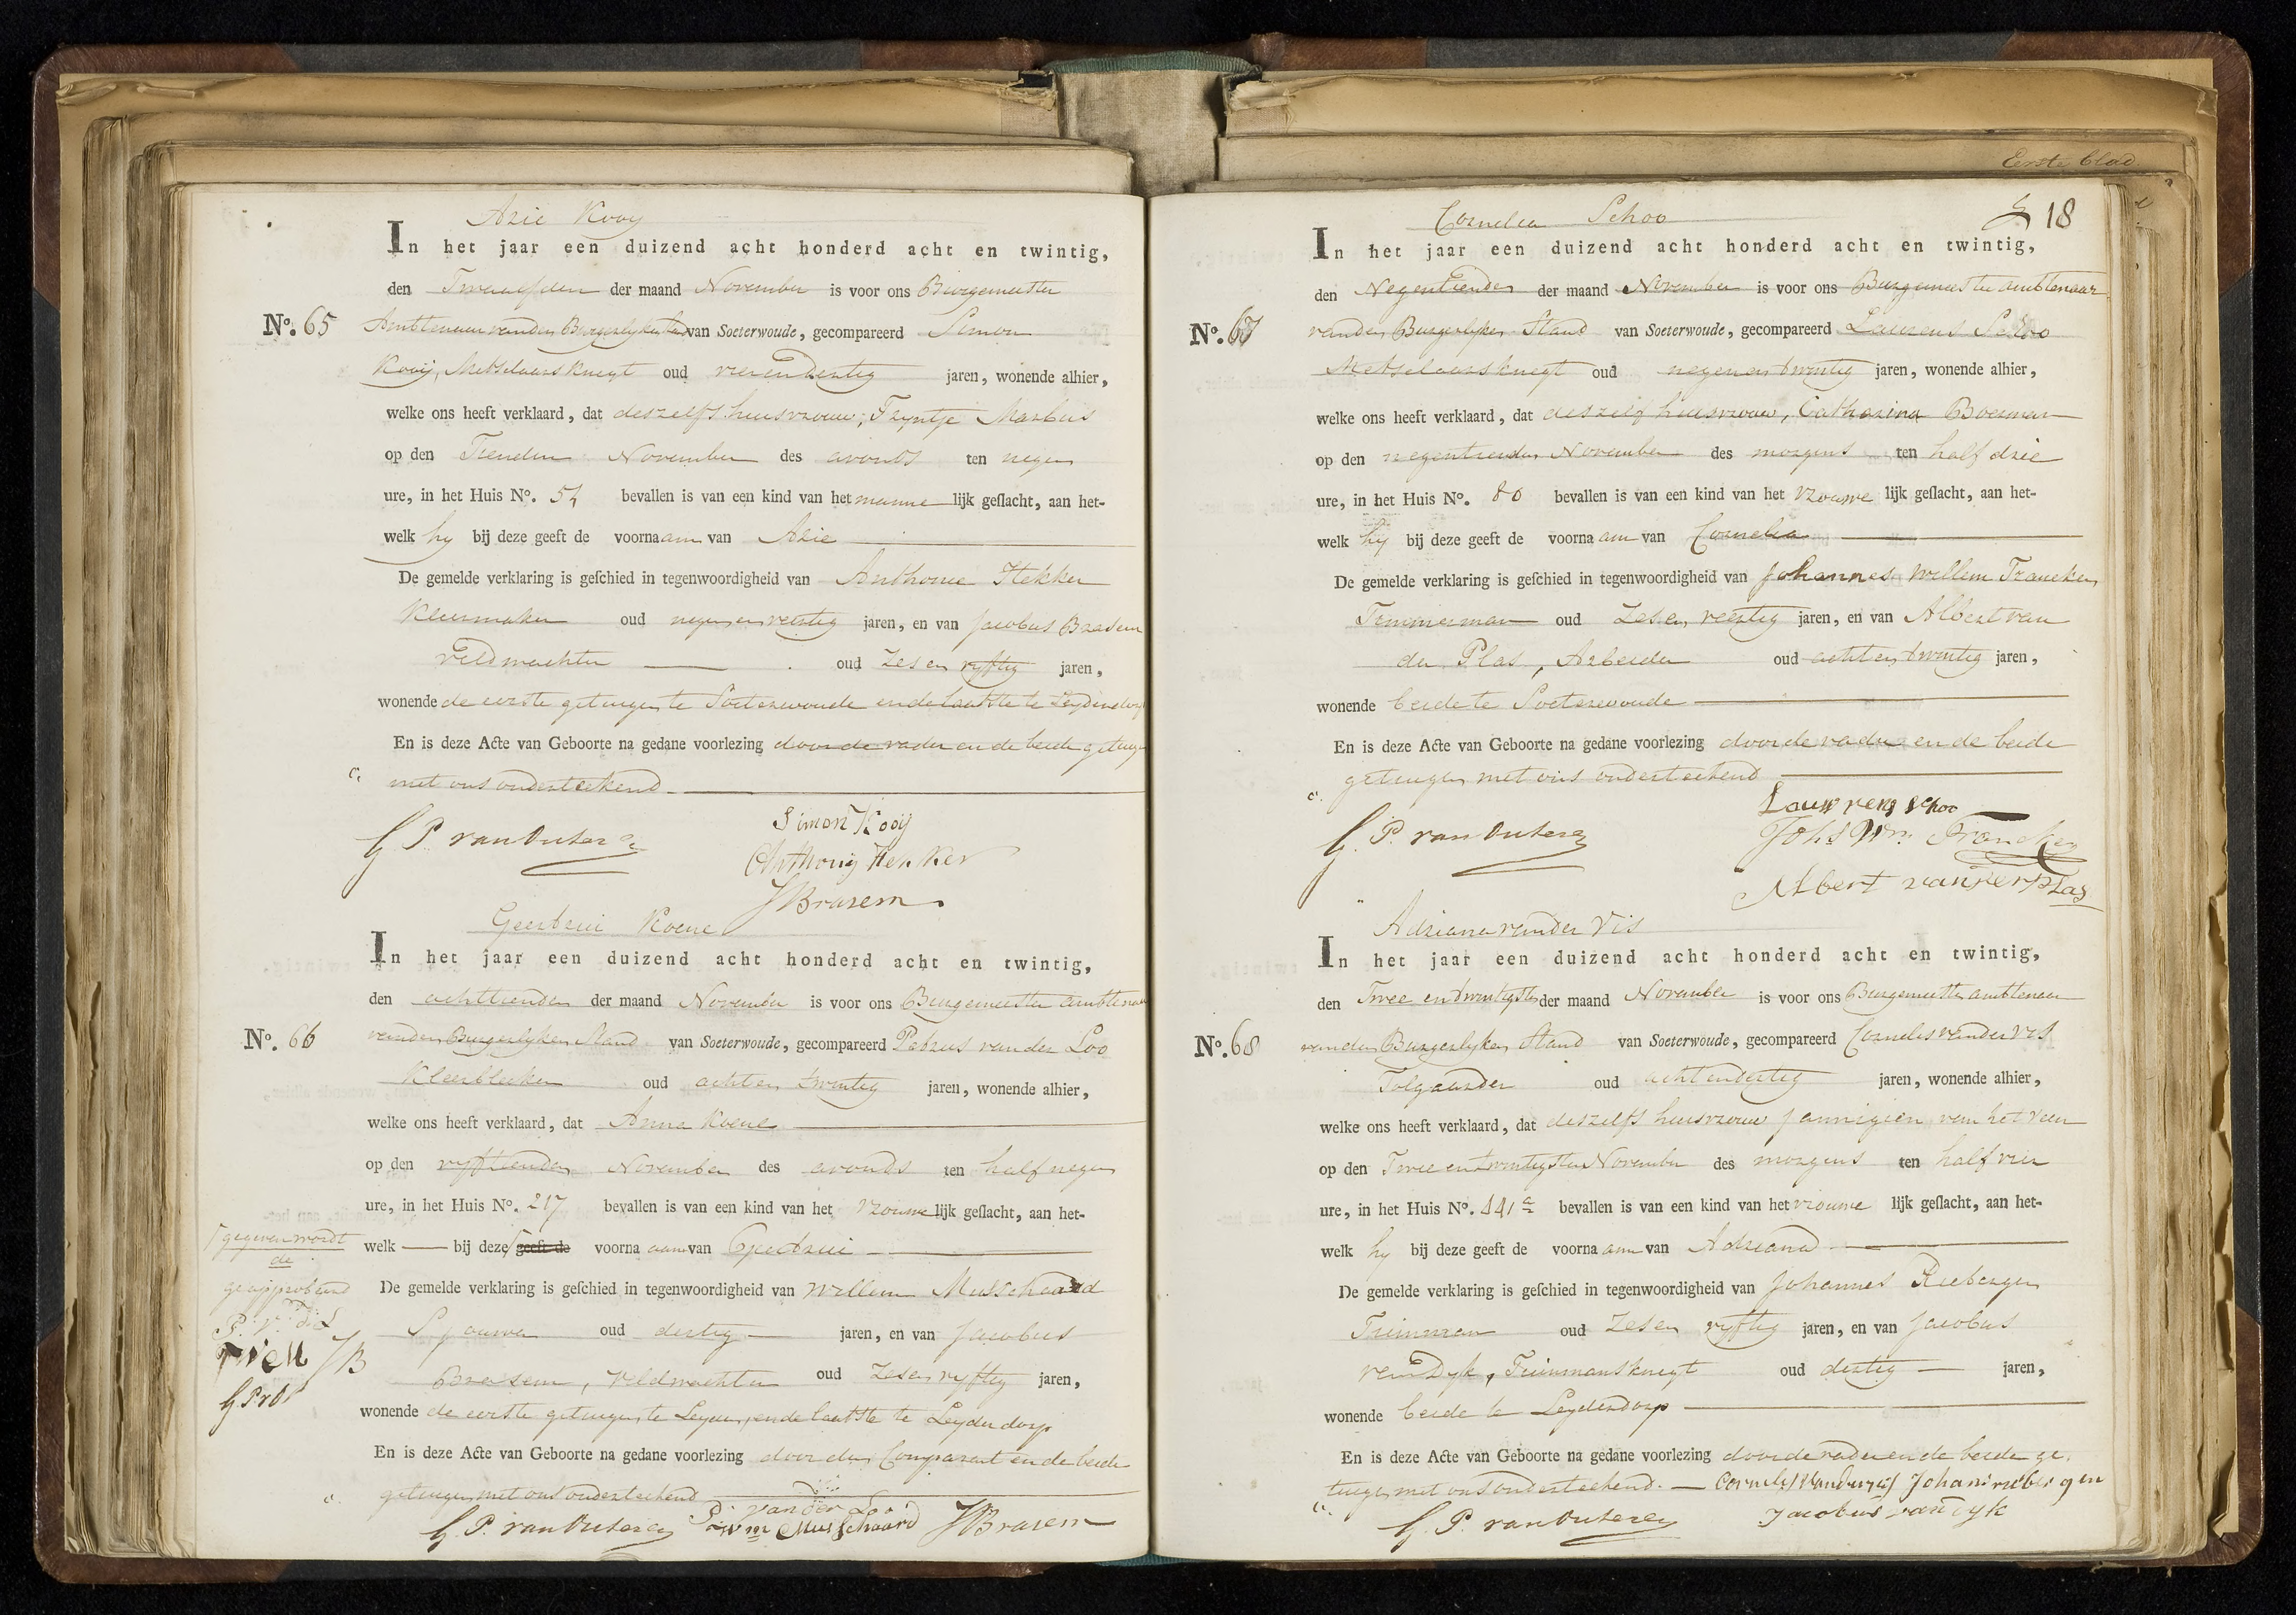 Arie Kooy
In het jaar een duizend acht honderd acht en twintig,
den Twaalfden der maand November is voor ons Burgemeester
No. 65 Ambtenaar van den Burgerlyken Stand van Soeterwoude, gecompareerd Simon
Kooij, Metselaarsknegt oud vierendertig jaren, wonende alhier,
welke ons heeft verklaard, dat deszelfs huisvrouw, Tryntje Markus
op den Tienden November des avonds ten negen
ure, in het Huis No. 54 bevallen is van een kind van het manne lijk geslacht, aan het-
welk hy bij deze geeft de voornaam van Arie
De gemelde verklaring is geschied in tegenwoordigheid van Anthonie Hekker
Kleermaker oud negen en veertig jaren, en van Jacobus Brasem
Veldwachter oud Zes en vyftig jaren,
wonende de eerste getuigen te Soeterwoude en de laatste te Leyderdorp
En is deze Acte van Geboorte na gedane voorlezing door de vader en de beide getuigen
met ons onderteekend
Simon Kooij
G. P. van Outeren
Anthonij Hekker
J Brasem
Geertrui Koene
In het jaar een duizend acht honderd acht en twintig,
den achttienden der maand November is voor ons Burgemeester ambtenaar
No. 66 van den Burgerlyken Stand van Soeterwoude, gecompareerd Petrus van der Loo
Kleerbleeker oud acht en twintig jaren, wonende alhier,
welke ons heeft verklaard, dat Anna Koene
op den vyftienden November des avonds ten half negen
ure, in het Huis No. 217 bevallen is van een kind van het vrouwe lijk geslacht, aan het-
gegeven wordt
de
welk bij deze geeft de voornaam van Geertrui
geapprobeerd
De gemelde verklaring is geschied in tegenwoordigheid van Willem Musschaard
P. v. d. L
Sjouwer oud dertig jaren, en van Jacobus
W M JB
Brasem, Veldwachter oud Zes en vyftig jaren,
G P v O
wonende de eerste getuigen te Leyden, en de laatste te Leyderdorp
En is deze Acte van Geboorte na gedane voorlezing door den Comparant en de beide
getuigen met ons onderteekend
P. van der Loo
G. P. van Outeren Wm Musschaard J Brasem
18
Cornelia Schoo
In het jaar een duizend acht honderd acht en twintig,
den Negentienden der maand November is voor ons Burgemeester ambtenaar
No. 67 van den Burgerlyken Stand van Soeterwoude, gecompareerd Laurens Schoo
Metselaarsknegt oud negen en twintig jaren, wonende alhier,
welke ons heeft verklaard, dat deszelfs huisvrouw, Catharina Boerman
op den negentienden November des morgens ten half drie
ure, in het Huis No. 80 bevallen is van een kind van het vrouwe lijk geslacht, aan het-
welk hij bij deze geeft de voornaam van Cornelia
De gemelde verklaring is geschied in tegenwoordigheid van Johannes Willem Francken
Timmerman oud Zes en veertig jaren, en van Albert van
der Plas, Arbeider oud acht en twintig jaren,
wonende beide te Soeterwoude
En is deze Acte van Geboorte na gedane voorlezing door de vader en de beide
getuigen met ons onderteekend
Lauwrens Schoo
G. P. van Outeren
Johs Wm. Francken
Albert van der Plas
Adriana van der Vis
In het jaar een duizend acht honderd acht en twintig,
den Twee en twintigsten der maand November is voor ons Burgemeester ambtenaar
No. 68 van den Burgerlyken Stand van Soeterwoude, gecompareerd Cornelis van der Vis
Tolgaarder oud acht en dertig jaren, wonende alhier,
welke ons heeft verklaard, dat deszelfs huisvrouw Jannigien van het Veen
op den Twee en twintigsten November des morgens ten half vier
ure, in het Huis No. 441 a bevallen is van een kind van het vrouwe lijk geslacht, aan het-
welk hy bij deze geeft de voornaam van Adriana
De gemelde verklaring is geschied in tegenwoordigheid van Johannes Riebergen
Timmerman oud Zes en vyftig jaren, en van Jacobus
van Dyk, Timmermansknegt oud dertig jaren,
wonende beide te Leyderdorp
En is deze Acte van Geboorte na gedane voorlezing door de vader en de beide ge
tuigen met ons onderteekend. Cornelis van der Vis Johanis riebergen
G. P. van Outeren Jacobus van Dyk
Eerste blad